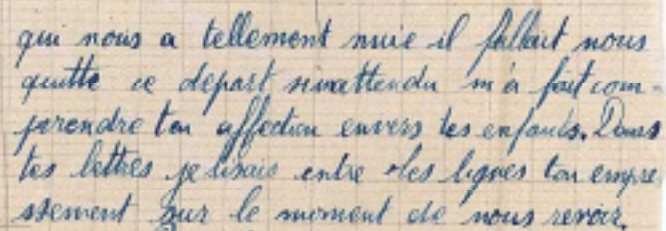 qui nous a tellement nuie il fallait nous
quitte ce depart sinattendu m'a fait com-
prendre ton affection envers tes enfants. Dans
tes lettres je lisais entre les lignes ton empre
ssement sur le moment de nous revoir.